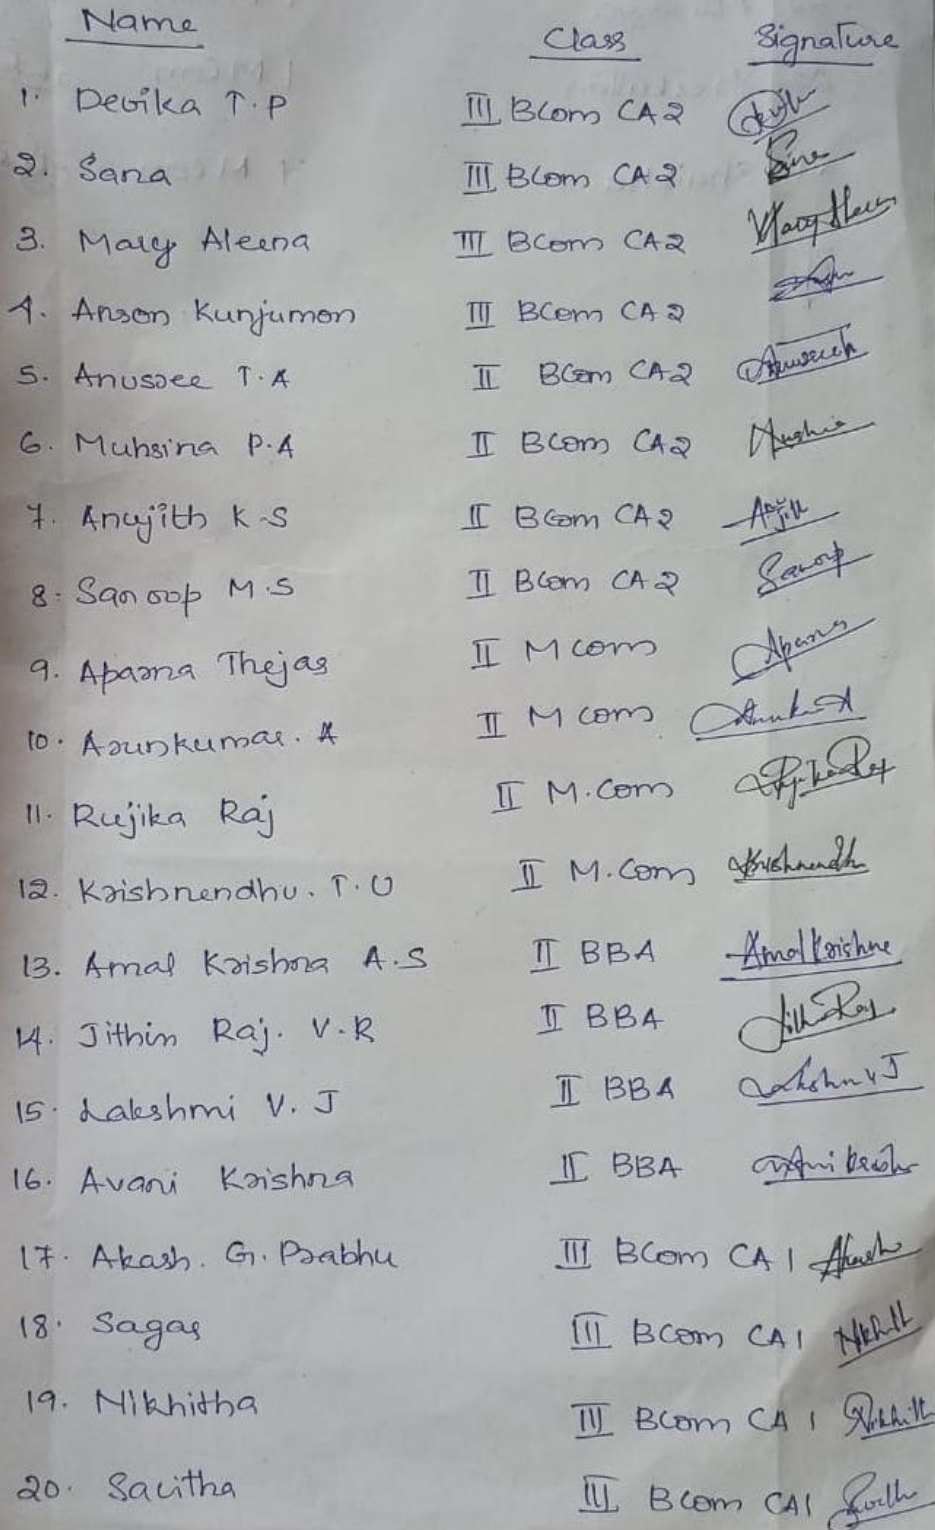 Name Class Signature
1. Devika T.P III BCom CA2
2. Sana III BCom CA2
3. Mary Aleena III BCom CA2 Mary Aleen
4. Anson Kunjumon III BCom CA2
5. Anusree T.A II BCom CA2
6. Muhsina P.A II BCom CA2
7. Anujith K.S II BCom CA2
8. Sanoop M.S II BCom CA2 Sanoop
9. Aparna Thejas II Mcom Aparna
10. Arunkumar. A II Mcom
11. Rujika Raj II M.Com
12. Krishnendhu. T.U II M.Com Krishnendhu
13. Amal Krishna A.S II BBA Amal Krishna
14. Jithin Raj. V.R II BBA
15. Lakshmi V. J II BBA
16. Avani Krishna II BBA
17. Akash. G. Prabhu III BCom CA 1 Akash
18. Sagar III BCom CA1
19. Nikhitha III BCom CA 1
20. Savitha III BCom CA1